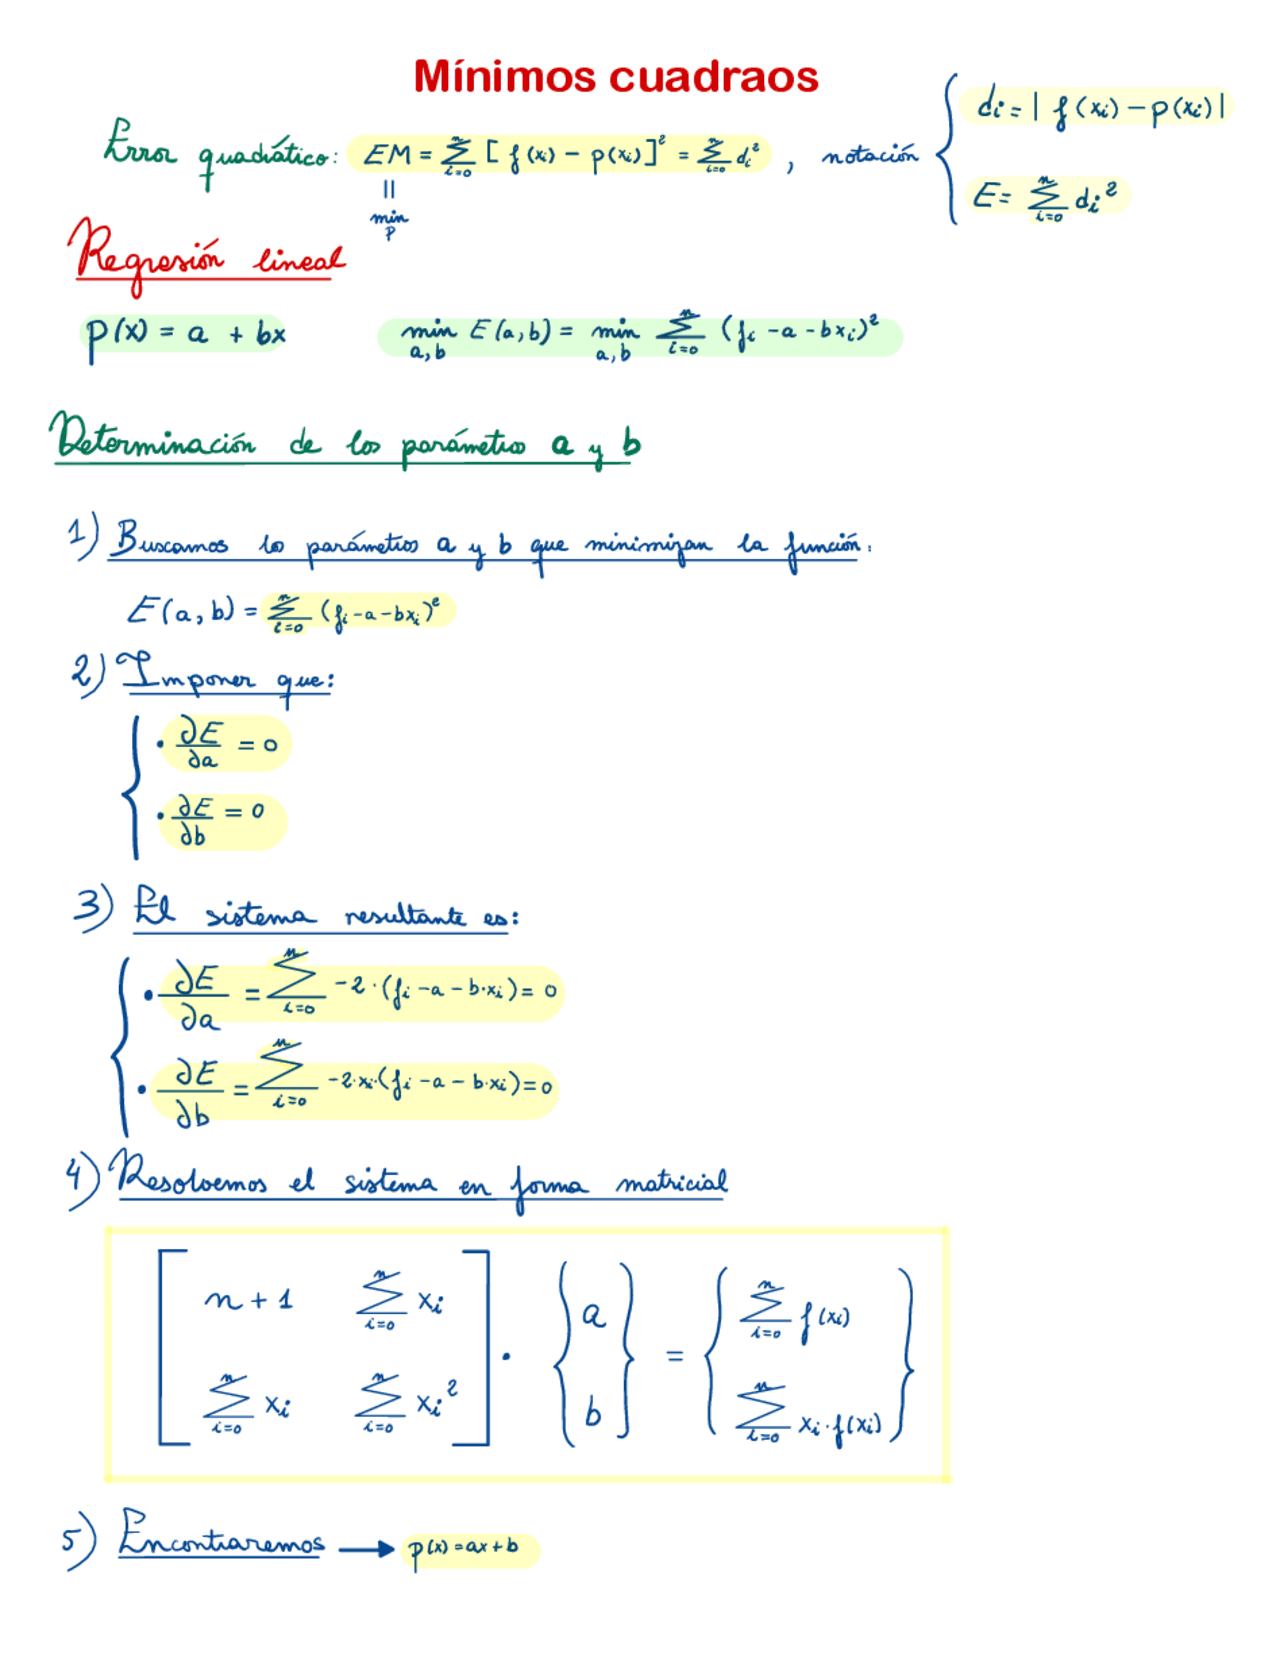 Mínimos cuadraos
Error quadrático: EM = ∑_{i=0}^{n} [f(xi) - p(xi)]² = ∑_{i=0}^{n} di² , notación { di = | f(xi) - p(xi) |
|| min_p
E = ∑_{i=0}^{n} di²
Regresión lineal
p(x) = a + bx    min_{a,b} E(a,b) = min_{a,b} ∑_{i=0}^{n} (fi - a - bxi)²
Determinación de los parámetros a y b
1) Buscamos los parámetros a y b que minimizan la función:
E(a,b) = ∑_{i=0}^{n} (fi - a - bxi)²
2) Imponer que:
{ · ∂E/∂a = 0
· ∂E/∂b = 0
3) El sistema resultante es:
{ · ∂E/∂a = ∑_{i=0}^{n} -2 · (fi - a - b·xi) = 0
· ∂E/∂b = ∑_{i=0}^{n} -2·xi·(fi - a - b·xi) = 0
4) Resolvemos el sistema en forma matricial
[ n + 1    ∑_{i=0}^{n} xi ] · { a } = { ∑_{i=0}^{n} f(xi) }
[ ∑_{i=0}^{n} xi    ∑_{i=0}^{n} xi² ] { b } { ∑_{i=0}^{n} xi · f(xi) }
5) Encontraremos → p(x) = ax + b